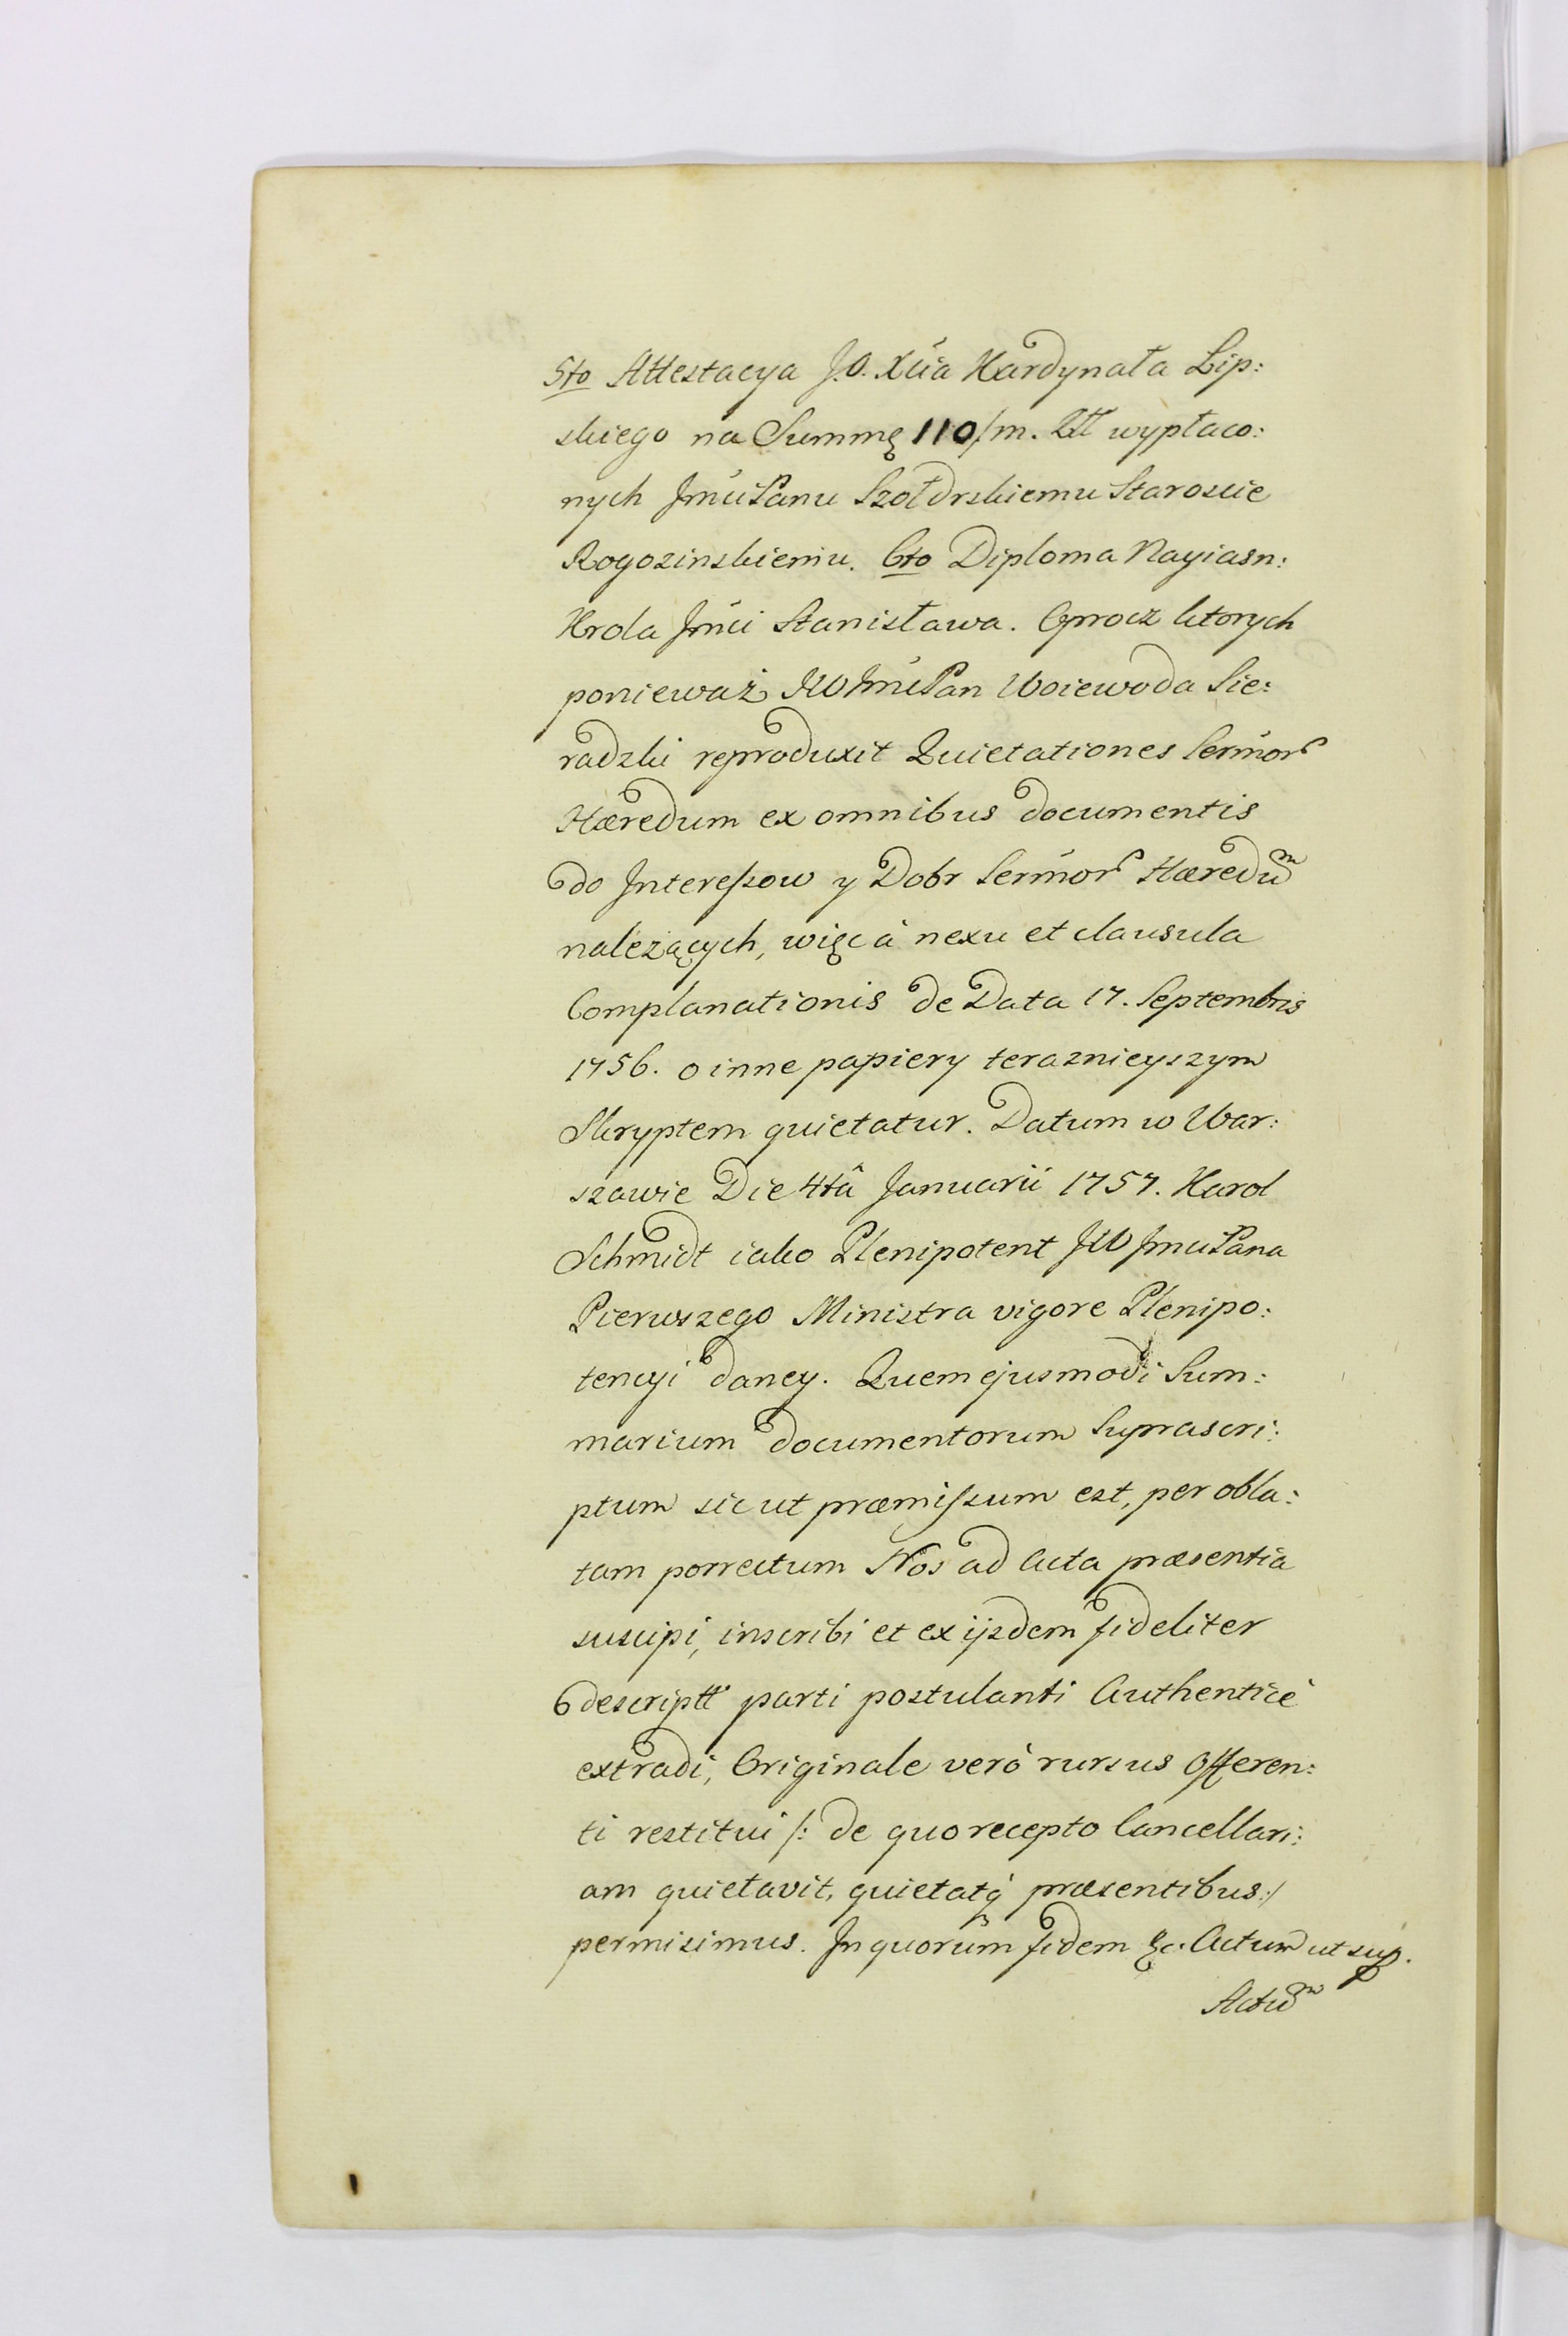 5to Attestacya J.O. Xcia Kardynała Lip:
skiego na Summę 110/m. Ztt wypłaco:
nych Jmći Panu Szołdrskiemu Staroscie
Rogozinskiemu. 6to Diploma Nayiasn:
Krola Jmći Stanisława. Oprocz ktorych
ponieważ JW Jmć Pan Woiewoda Sie:
radzki reproduxit Quietationes Serm̃or
Hæredum ex omnibus documentis
do Interessow y Dobr Serm̃or Hæredum
nalezących, więc à nexu et clausula
Complanationis de Data 17. Septembris
1756. o inne papiery teraznieyszym
Skryptem quietatur. Datum w War:
szawie Die 4tâ Januarii 1757. Karol
Schmidt iako Plenipotent JW Jmci Pana
Pierwszego Ministra vigore Plenipo:
tencyi daney. Quem ejusmodi Sum:
marium documentorum Suprascri:
ptum sicut præmissum est, per obla:
tam porrectum Nos ad Acta præsentia
suscipi, inscribi et ex ijsdem fideliter
descriptt parti postulanti Authenticè
extradi, Originale verò rursus Offeren:
ti restitui /: de quo recepto Cancellari:
am quietavit, quietatq́ præsentibus :/
permisimus. In quorum fidem &c. Actum ut sup.
Actum